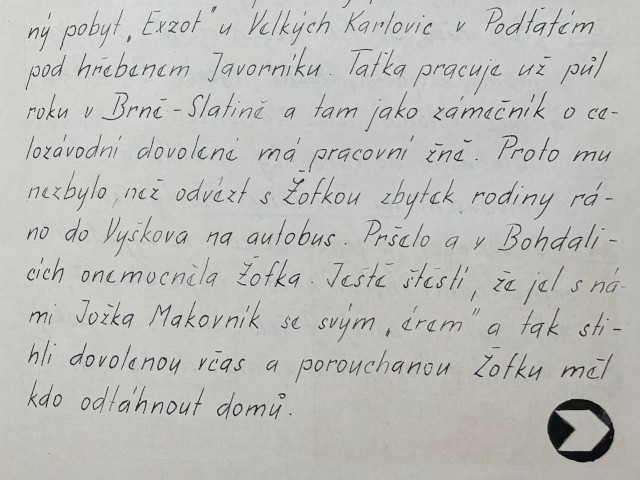 ný pobyt „Exzot" u Velkých Karlovic v Podťatém
pod hřebenem Javorníku. Taťka pracuje už půl
roku v Brně-Slatině a tam jako zámečník o ce-
lozávodní dovolené má pracovní žně. Proto mu
nezbylo, než odvézt s Žofkou zbytek rodiny rá-
no do Vyškova na autobus. Pršelo a v Bohdali-
cích onemocněla Žofka. Ještě štěstí, že jel s ná-
mi Jožka Makovník se svým „érem" a tak sti-
hli dovolenou včas a porouchanou Žofku měl
kdo odtáhnout domů.